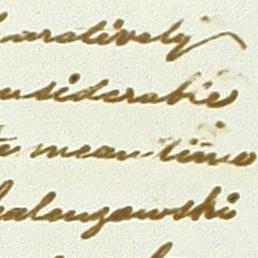 aratively
nsiderable
meantime
alougowski